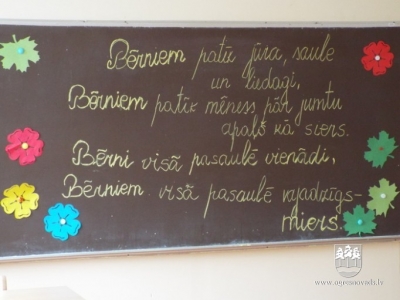 Bērniem patīk jūra, saule
un liedagi,
Bērniem patīk mēness pār jumtu
apaļš kā siers.
Bērni visā pasaulē vienādi,
Bērniem visā pasaulē vajadzīgs-
miers.
www.ogresnovads.lv